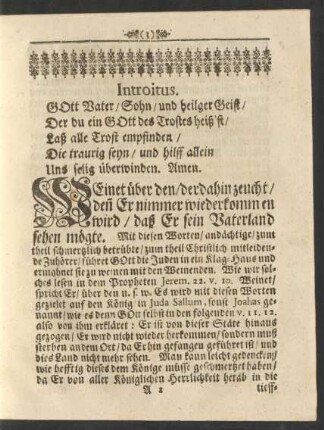 (3)
Introitus.
GOtt Vater / Sohn / und heilger Geist /
Der du ein GOtt des Trostes heiß'st /
Laß alle Trost empfinden /
Die traurig seyn / und hilff allein
Uns selig überwinden. Amen.
WEinet über den / der dahin zeucht /
deñ Er nimmer wiederkommen
wird / daß Er sein Vaterland
sehen mögte. Mit diesen Worten / andächtige / zum
theil schmertzlich betrübte / zum theil Christlich mitleiden-
de Zuhörer / führet GOtt die Juden in ein Klag-Haus und
ermahnet sie zu weinen mit den Weinenden. Wie wir sol-
ches lesen in dem Propheten Jerem. 22. v. 10. Weinet /
spricht Er / über den u. s. w. Es wird mit diesen Worten
gezielet auf den König in Juda Sallum, sonst Joahas ge-
nannt / wie es denn GOtt selbst in den folgenden v. 11. 12.
also von ihm erkläret: Er ist von dieser Städte hinaus
gezogen / Er wird nicht wieder herkommen / sondern muß
sterben an dem Ort / da Er hin gefangen geführet ist / und
dies Land nicht mehr sehen. Man kann leicht gedencken /
wie hefftig dieses dem Könige müsse geschmertzet haben /
da Er von aller Königlichen Herrlichkeit herab in die
A 2 tieff-